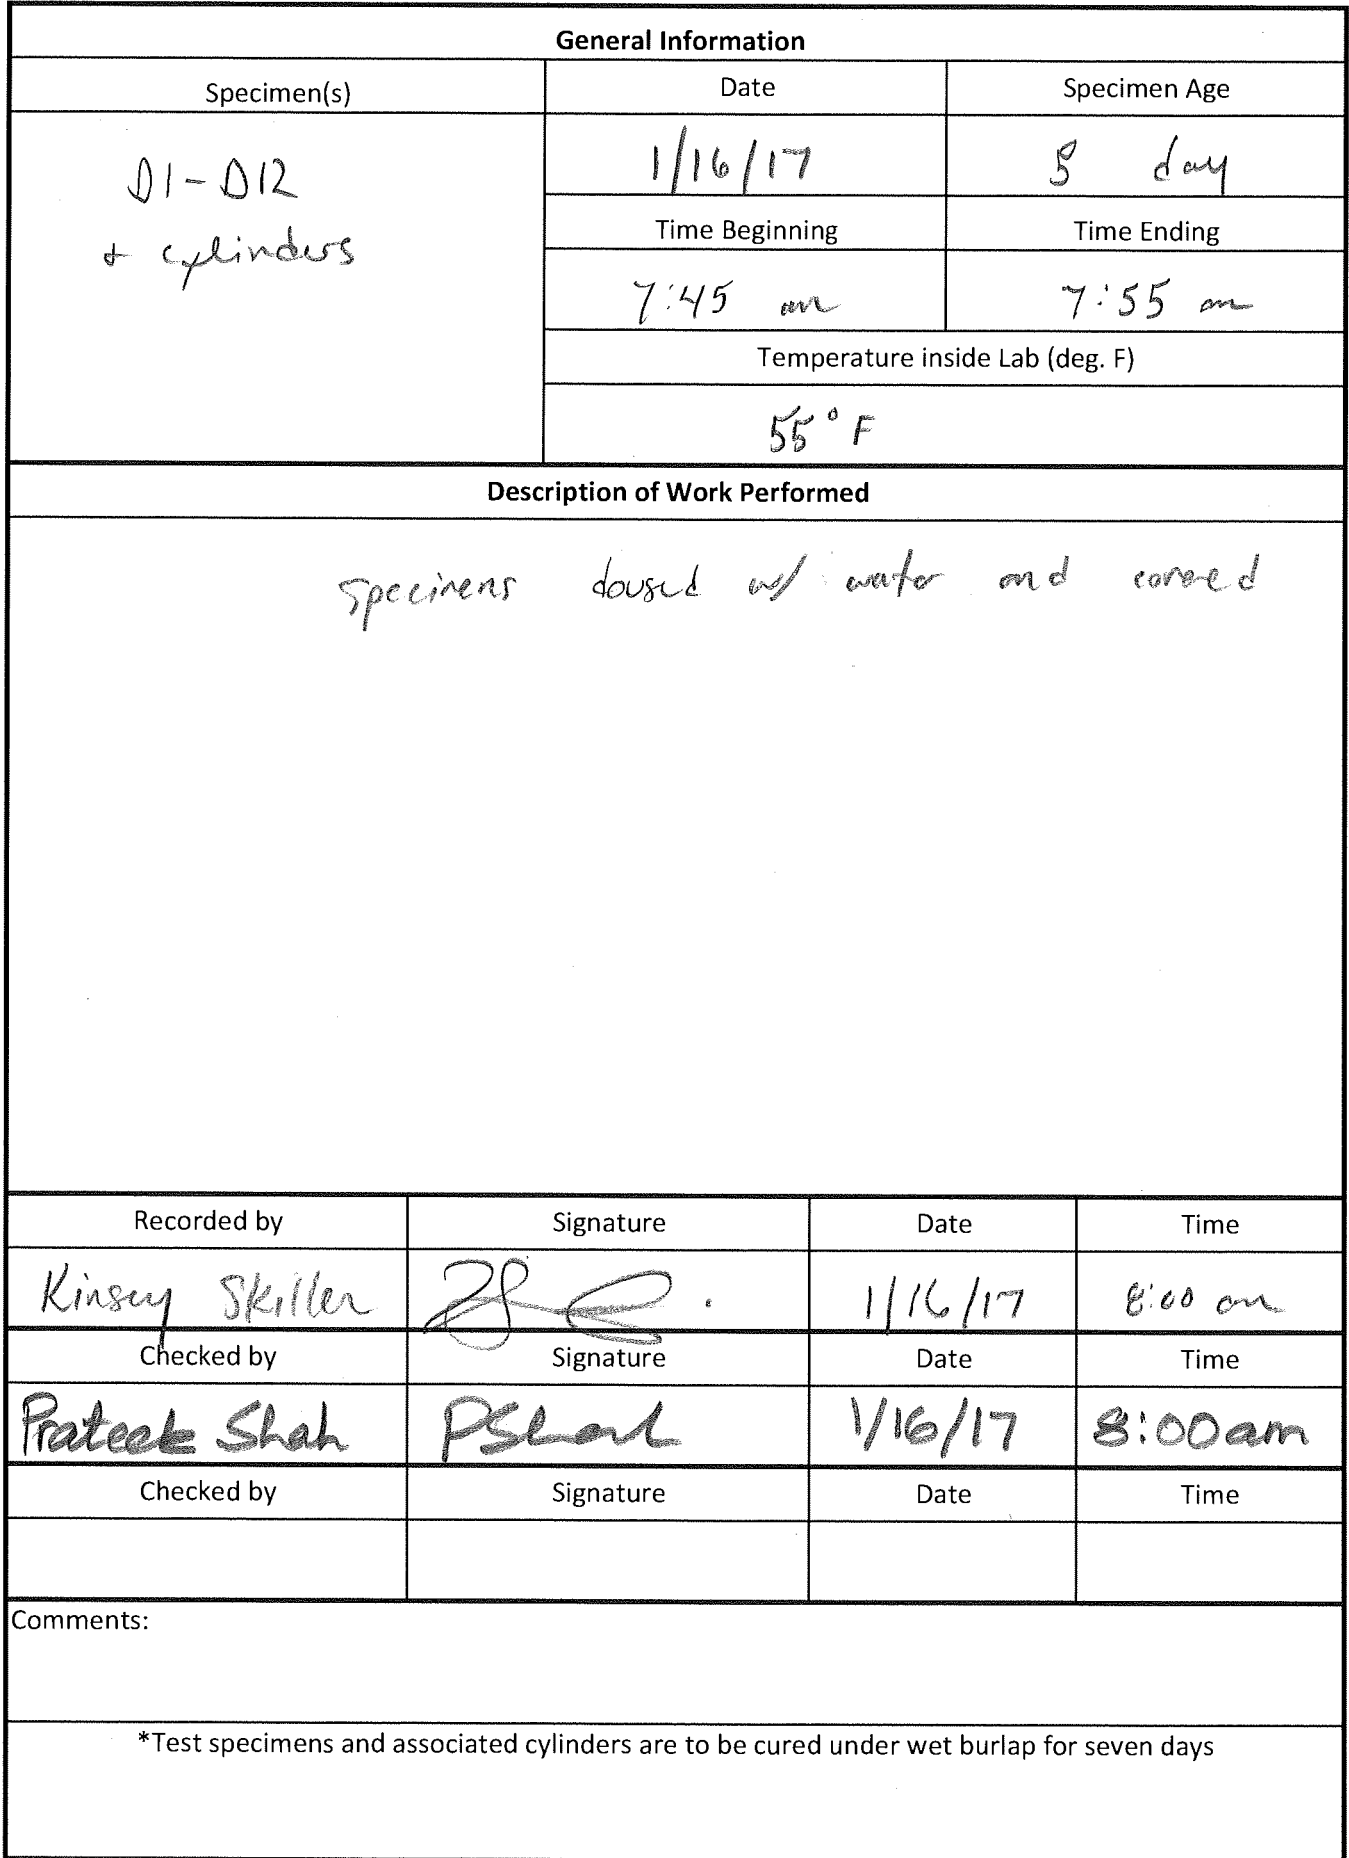 General Information
Specimen(s) Date Specimen Age
D1-D12 1/16/17 5 day
+ cylinders
Time Beginning Time Ending
7:45 am 7:55 am
Temperature inside Lab (deg. F)
55°F
Description of Work Performed
specimens doused w/ water and covered
Recorded by Signature Date Time
Kinsey Skiller 1/16/17 8:00 am
Checked by Signature Date Time
Prateek Shah PShah 1/16/17 8:00am
Checked by Signature Date Time
Comments:
*Test specimens and associated cylinders are to be cured under wet burlap for seven days